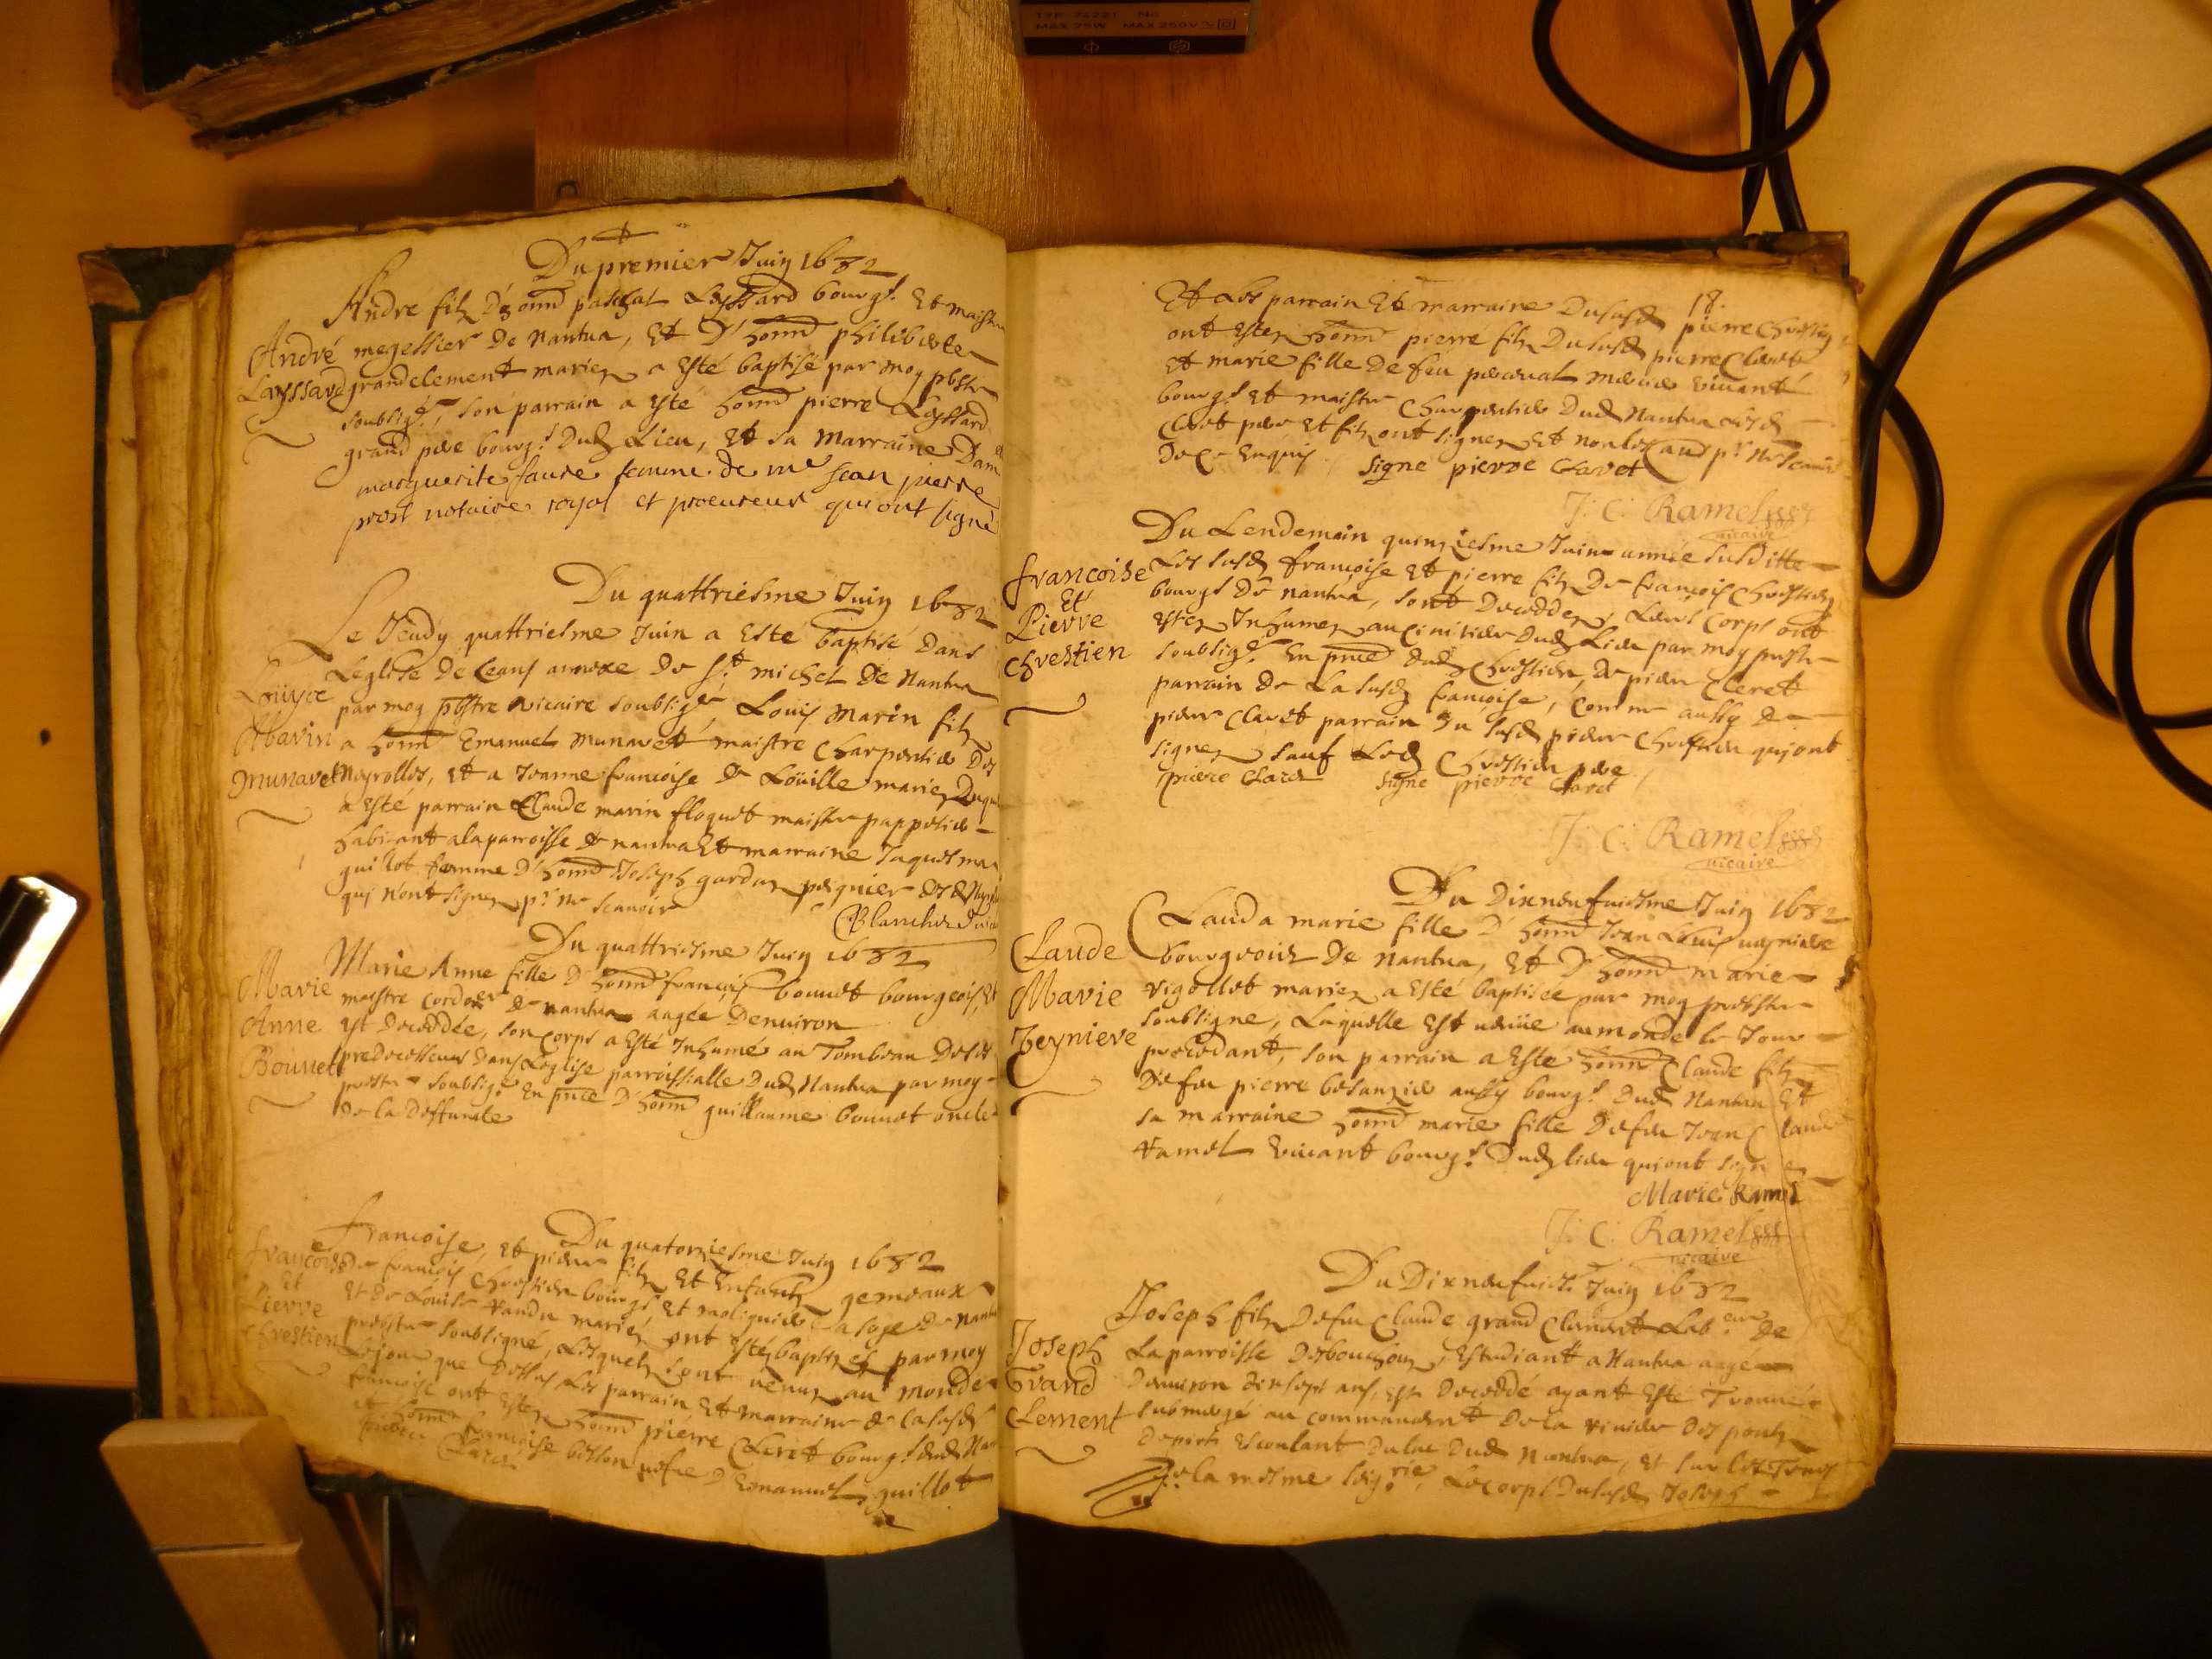 TYP
MAX 75W MAX 250V
Du premier Juin 1682
Andre filz D'honn̄ paschal Layssard bourg.s Et maistre
André
Layssard
megessier De Nantua, Et D' honn̄ philiberte
grandclement mariez a Esté baptisé par moy pbstre
soubsig.é, son parrain a esté honn̄ pierre Layssard
grand pere bourg.s Dud Lieu, Et sa Marraine Dam
marguerite faure femme de me Jean pierre
prost notaire royal et procureur qui ont signé
Du quattriesme Juin 1682
Le Jeudy quattriesme Juin a Esté baptisé Dans
Leglise de Ceans annexe De s.t michel De Nantua
Louyce
Marin
Munavet
par moy pbstre vicaire soubsigé Louis Marin filz
a honn̄ Emanuel Munavett maistre Charpentier Des
Neyrolles, Et a Jeanne francoise De Loüille mariez Duquel
a Esté parrain Claude marin floquet maistre pappetier
habitant a la parroisse de nantua Et marraine Jaquema
guillot femme D'honn̄ Joseph gardaz
qui n'ont signez p.r ne scavoir
Du quattriesme Juin 1682
Marie
Anne
Bouuet
Marie Anne fille D'honn̄ francois bouuet bourgeois Et
maistre Cordoer De nantua aagée Denuiron
est Decedée, son Corps a Esté Inhumé au Tombeau De ses
predecesseurs Dans Leglise parroissialle Dud Nantua par moy
prestre soubsigé En pnce D'honn̄ guillaume bouuet oncle
De la Deffuncte
Du quatorziesme Juin 1682
francoise
Et
Pierre
Chrestien
francoise, Et pierre filz Et Enfantz gemeaux
De francois Chrestien bourgs Et
Et De Louise mariez ont Esté baptisés par moy
prestre soubsigné, Lesquelz sont venuz au monde
Le jour que Dessus Les parrain Et marraine de la susd
francoise ont Estez honn̄ pierre Cleret bourg.s dud Nan
et honn̄ francoise besson vefue D'Emanuel guillot
pierre Claret
18.
Et Les parrain Et marraine Du susd pierre Chrestien
ont Estez honn̄ pierre filz Du susd pierre Claret
Et marie fille De feu perceval mercier viuant
bourg.s Et maistre Charpentier Dud Nantua Lesd
Claret pere Et filz ont signez Et non les aud p.r Ne scavoir
De Ce Enquis
Signe pierre Clavet
J: C: Ramel
vicaire
Du Lendemain quinziesme Juin année susditte
francoise
Et
Pierre
chrestien
Les susd francoise Et pierre filz De francois Chrestien
bourgs De nantua, sont Decedez, Leurs Corps ont
Estez Inhumez au Cimitiere Dud Lieu par moy prestre
soubsigé En pnce Dud Chrestien, De pierre Cleret
parrain De La susd francoise, Comme aussy De
pierre Claret parrain Du susd pierre Chrestien qui ont
signez sauf Led Chrestien pere
pierre Claret
Signe pierre Clavet
J: C: Ramel
vicaire
Du Dixneufuiesme Juin 1682
Claude
Marie
Teyniere
Clauda marie fille D'honn̄ Jean Louis
bourgeois De Nantua, Et D'honn̄ marie
Vigollet mariez a Esté baptisée par moy prestre
soubsigne, Laquelle Est venue au monde le Jour
precedant, son parrain a Esté honn̄ Claude filz
De feu pierre aussy bourg.s Dud Nantua Et
sa marraine honn̄ marie fille De feu Jean Claude
ramel viuant bourg.s Dud lieu qui ont signez
Marie Ramel
J: C: Ramel
vicaire
Du Dixneufuies. Juin 1682
Joseph
Grand
Clement
Joseph filz De feu Claude grand Clement Lab.eur De
La parroisse Desbouchoux, Estudiant a Nantua aagé
Denuiron dixsept ans, Est Decedé ayant Esté Trouué
submergé au commancement De la riuiere Des pontz
Escoulant Du lac Dud Nantua, Et sur les
De la mesme seig.rie, Le corps Du susd Joseph